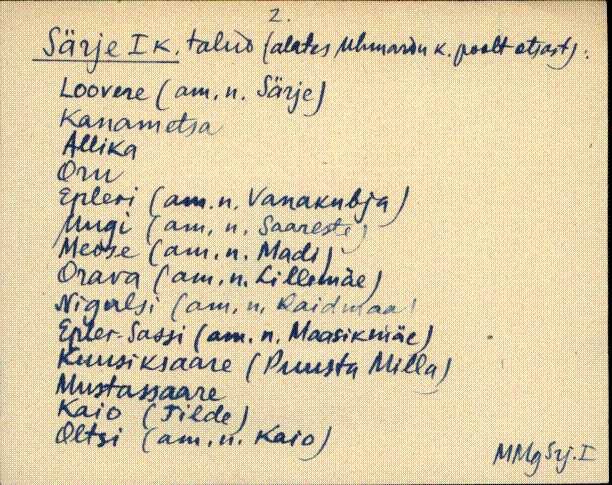 2.
Särje I k. talud (alates Uhmardu k. poolt otsast):
Loovere (am. n. Särje)
Kanametsa
Allika
Oru
Epleri (am. n. Vanakubja)
Uugi (am. n. Saareste)
Meose (am. n. Madi)
Orava (am. n. Lillemäe)
Nigulsi (am. n. Raidmaa)
Epler-Sassi (am. n. Maasikmäe)
Kuusiksaare (Puusta Milla)
Mustassaare
Kaio (Tilde)
Oltsi (am. n. Kaio)
MMg Srj. I